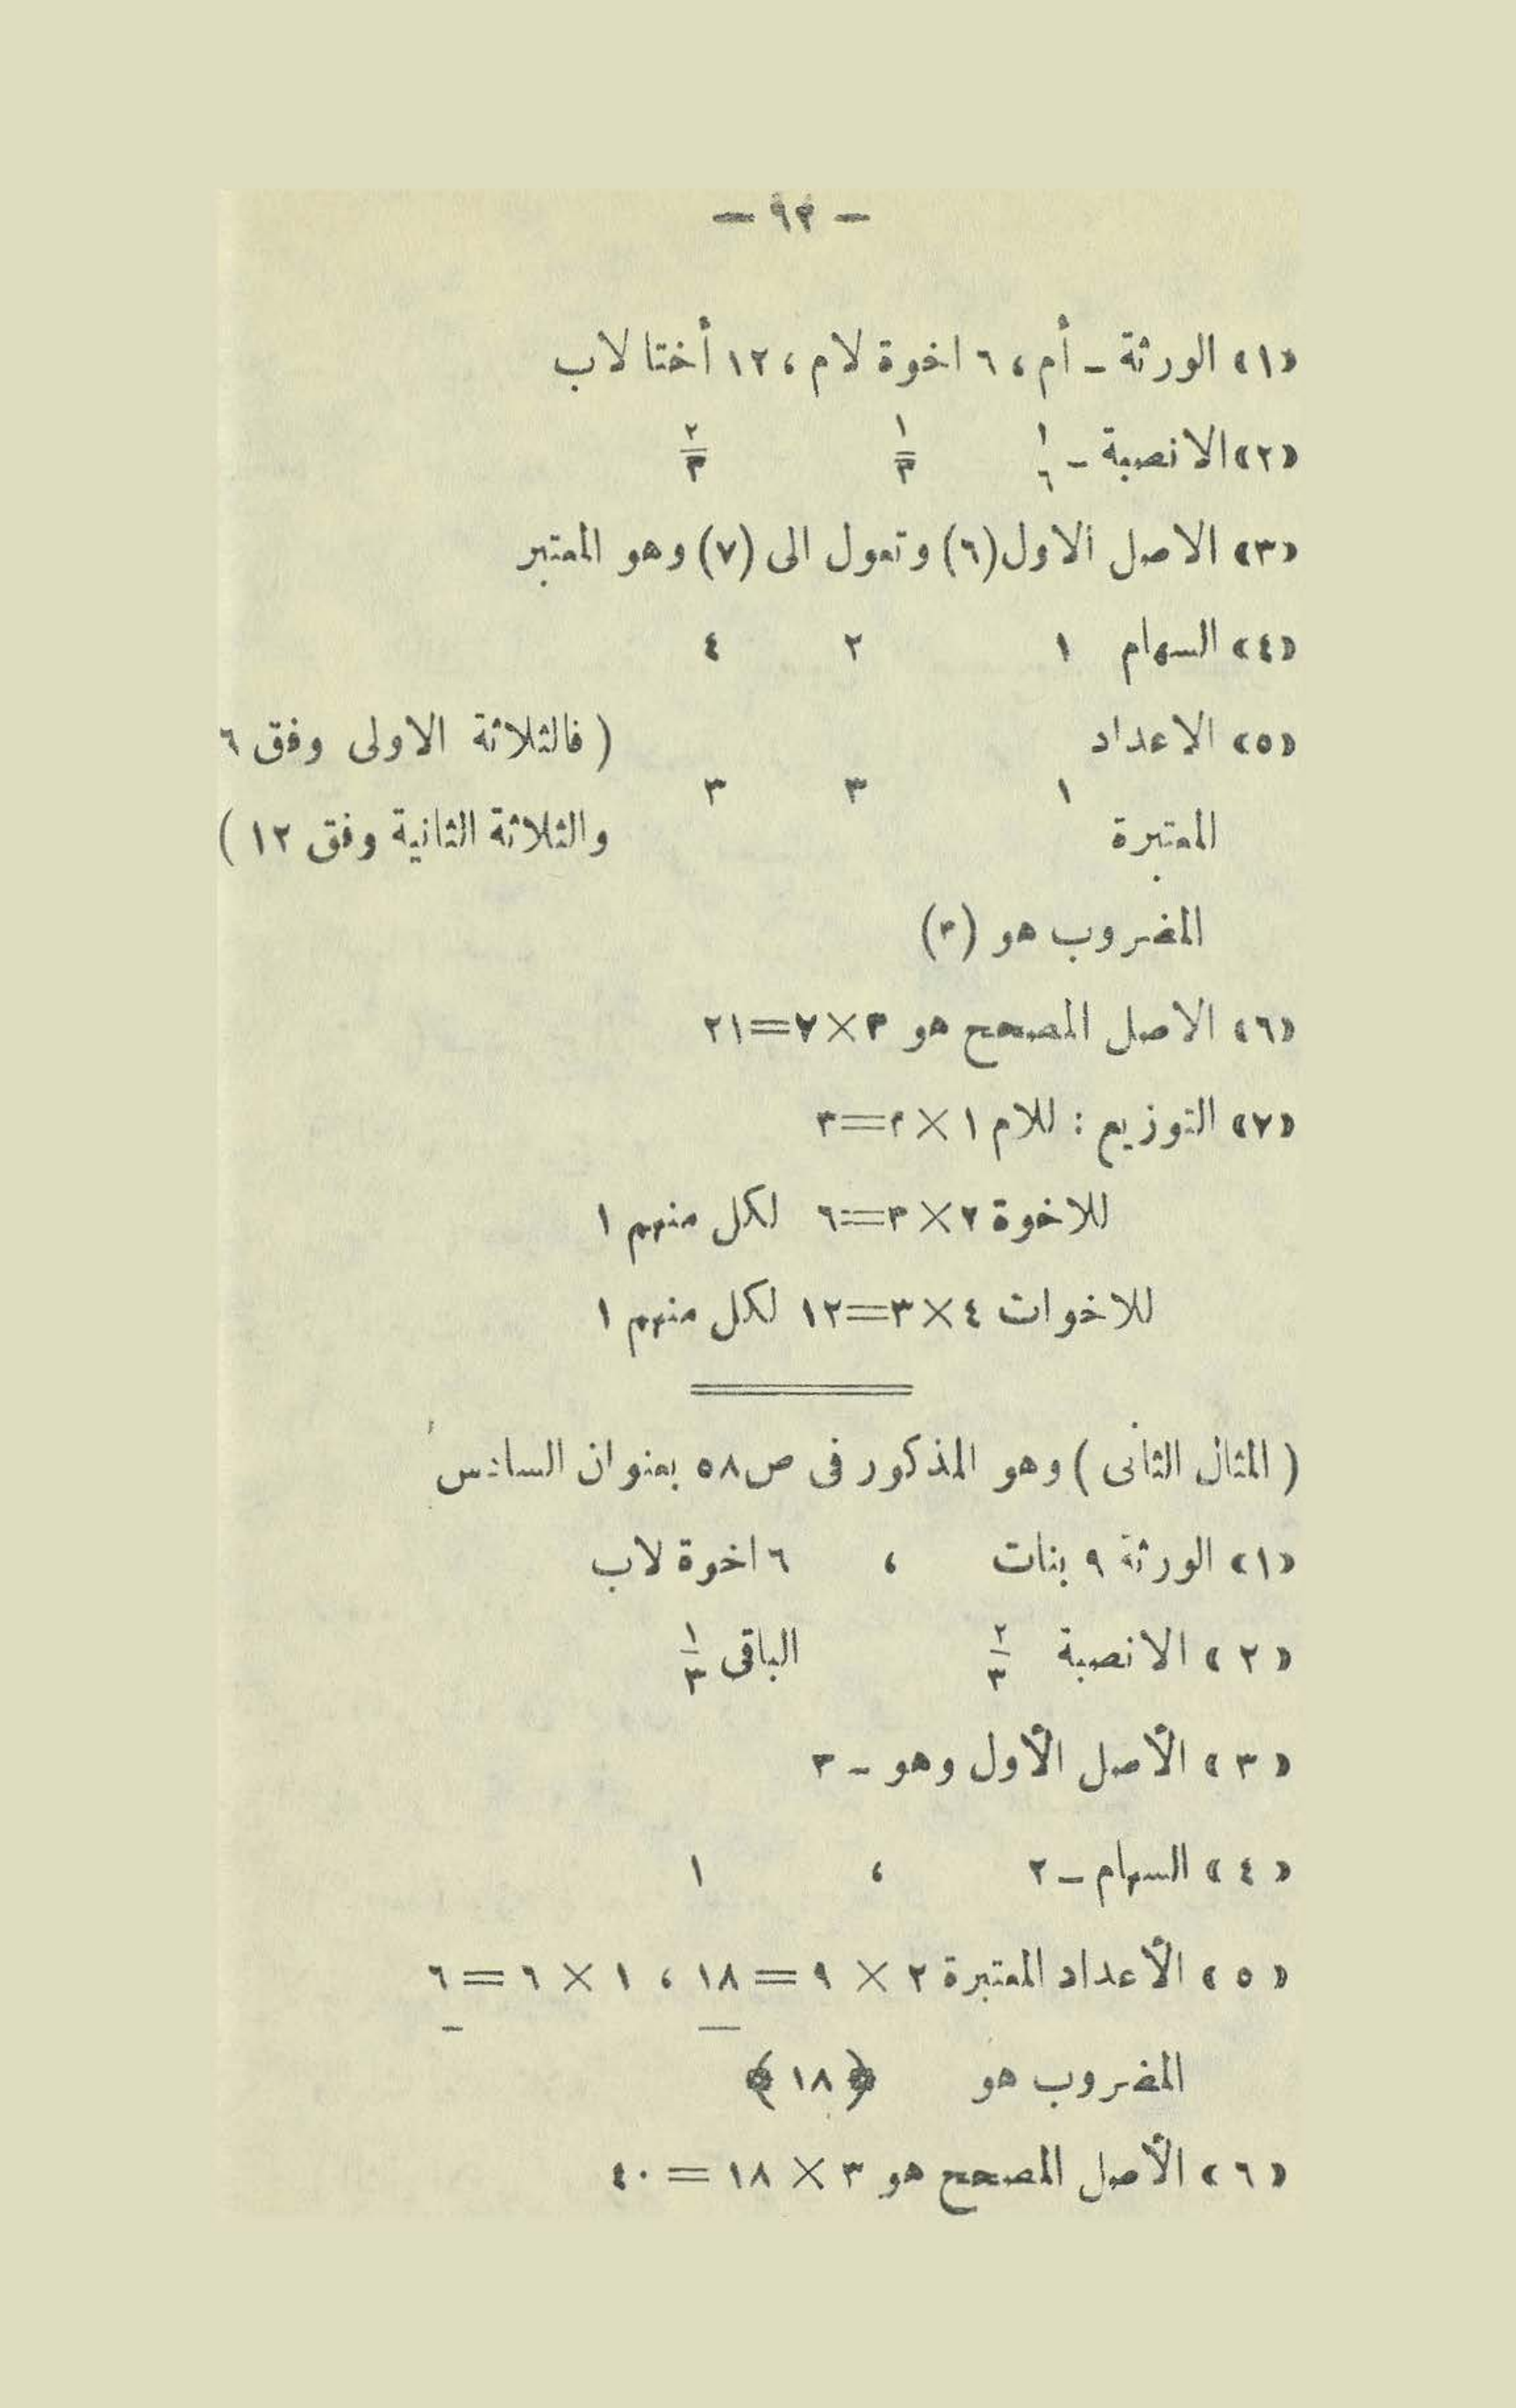 — ٩٣ —
«١» الورثة ـ أم ، ٦ اخوة لام ، ١٢ أختا لاب
«٢» الانصبة ـ ١/٦ ١/٣ ٢/٣
«٣» الاصل الاول (٦) وتعول الى (٧) وهو المعتبر
«٤» السهام ١ ٢ ٤
«٥» الاعداد ( فالثلاثة الاولى وفق ٦
١ ٣ ٣
المعتبرة والثلاثة الثانية وفق ١٢ )
المضروب هو (٣)
«٦» الاصل المصحح هو ٣×٧=٢١
«٧» التوزيع : للام ١×٣=٣
للاخوة ٢×٣=٦ لكل منهم ١
للاخوات ٤×٣=١٢ لكل منهم ١
( المثال الثانى ) وهو المذكور فى ص٥٨ بعنوان السادس
«١» الورثة ٩ بنات ، ٦ اخوة لاب
«٢» الانصبة ٢/٣ الباقى ١/٣
«٣» الأصل الأول وهو ـ ٣
«٤» السهام ـ ٢ ، ١
«٥» الأعداد المعتبرة ٢ × ٩ = ١٨ ، ١ × ٦ = ٦
المضروب هو ﴿١٨﴾
«٦» الأصل المصحح هو ٣ × ١٨ = ٤٠